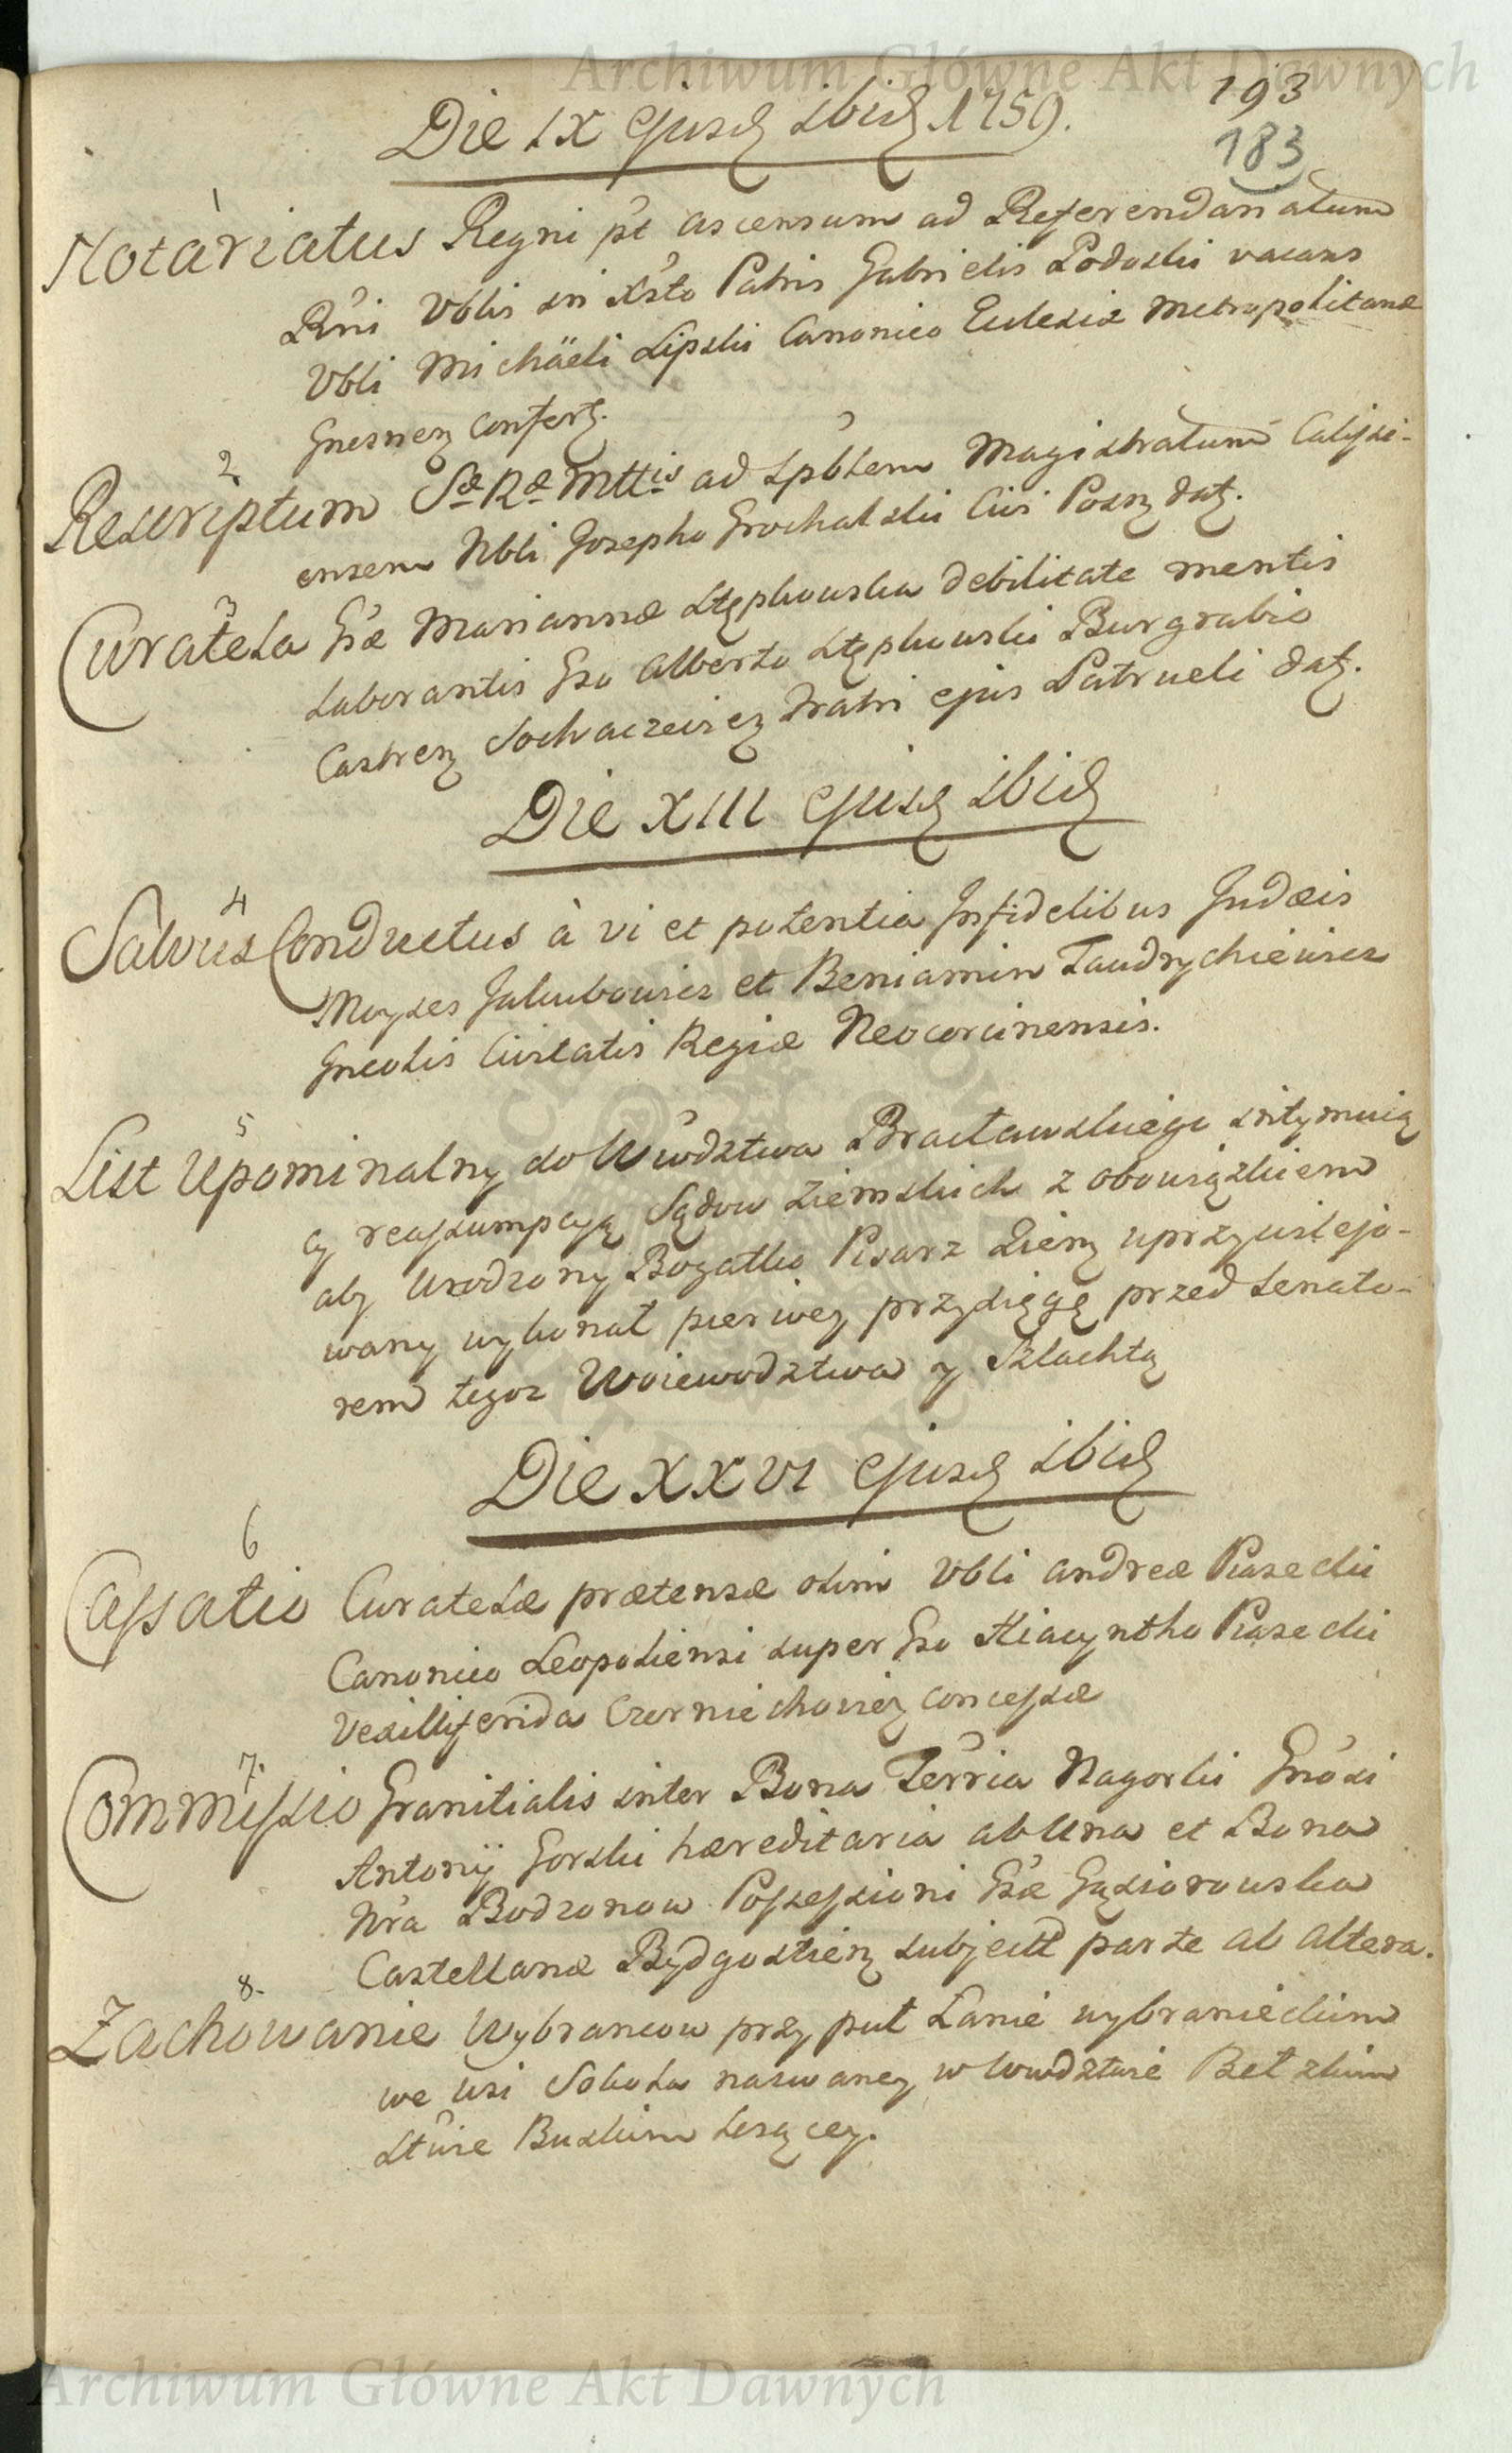 Archiwum Główne Akt Dawnych
193
Die IX ejusd ibid 1759.
183
1
Notariatus Regni pt ascensum ad Referendariatum
Rni Vblis in Xsto Patris Gabrielis Podoski vacans
Vbli Michaeli Lipski Canonico Eclesiæ Metropolitanæ
Gnesnen confert.
2
Rescriptum Sæ Ræ Mttis ad Spblem Magistratum Calissi-
ensem Nbli Josepho Grochalski Civi Posn dat.
3
Curatela Gsæ Mariannæ Stępkowska debilitate mentis
laborantis Gso Alberto Stępkowski Burgrabio
Castren Sochaczevien Fratri ejus Patrueli dat.
Die XIII ejusd ibid
4
Salvus Conductus à vi et potentia Infidelibus Judæis
Moyses Jakubowicz et Beniamin Jaudrychiewicz
Incolis Civitatis Regiæ Neocorcinensis.
5
List Upominalny do Wwdztwa Bracławskiego intymuią
cy reassumpcyą Sądow Ziemskich z obowiązkiem
aby Urodzony Bogatko Pisarz Ziem uprzywilejo-
wany wykonał pierwey przysięgę przed Senato-
rem tegoz Woiewodztwa y Szlachtą
Die XXVI ejusd ibid
6
Cassatio Curatelæ prætensæ olim Vbli Andreæ Piasecki
Canonico Leopoliensi super Gso Hiacyntho Piasecki
Vexilliferida Czerniechovien concessæ
7.
Commissio Granitialis inter Bona Terria Nagorki Gnosi
Antonij Gorski hæreditaria ab Una et Bona
Nra Bodzonow Possessioni Gsæ Gąsiorowska
Castellanæ Bydgostien subject parte ab Altera.
8.
Zachowanie Wybrancow przy puł Łanie wybranieckim
we wsi Sokola nazwaney w Wwdztwie Bełzkim
Stwie Buskim lezącey.
Archiwum Główne Akt Dawnych